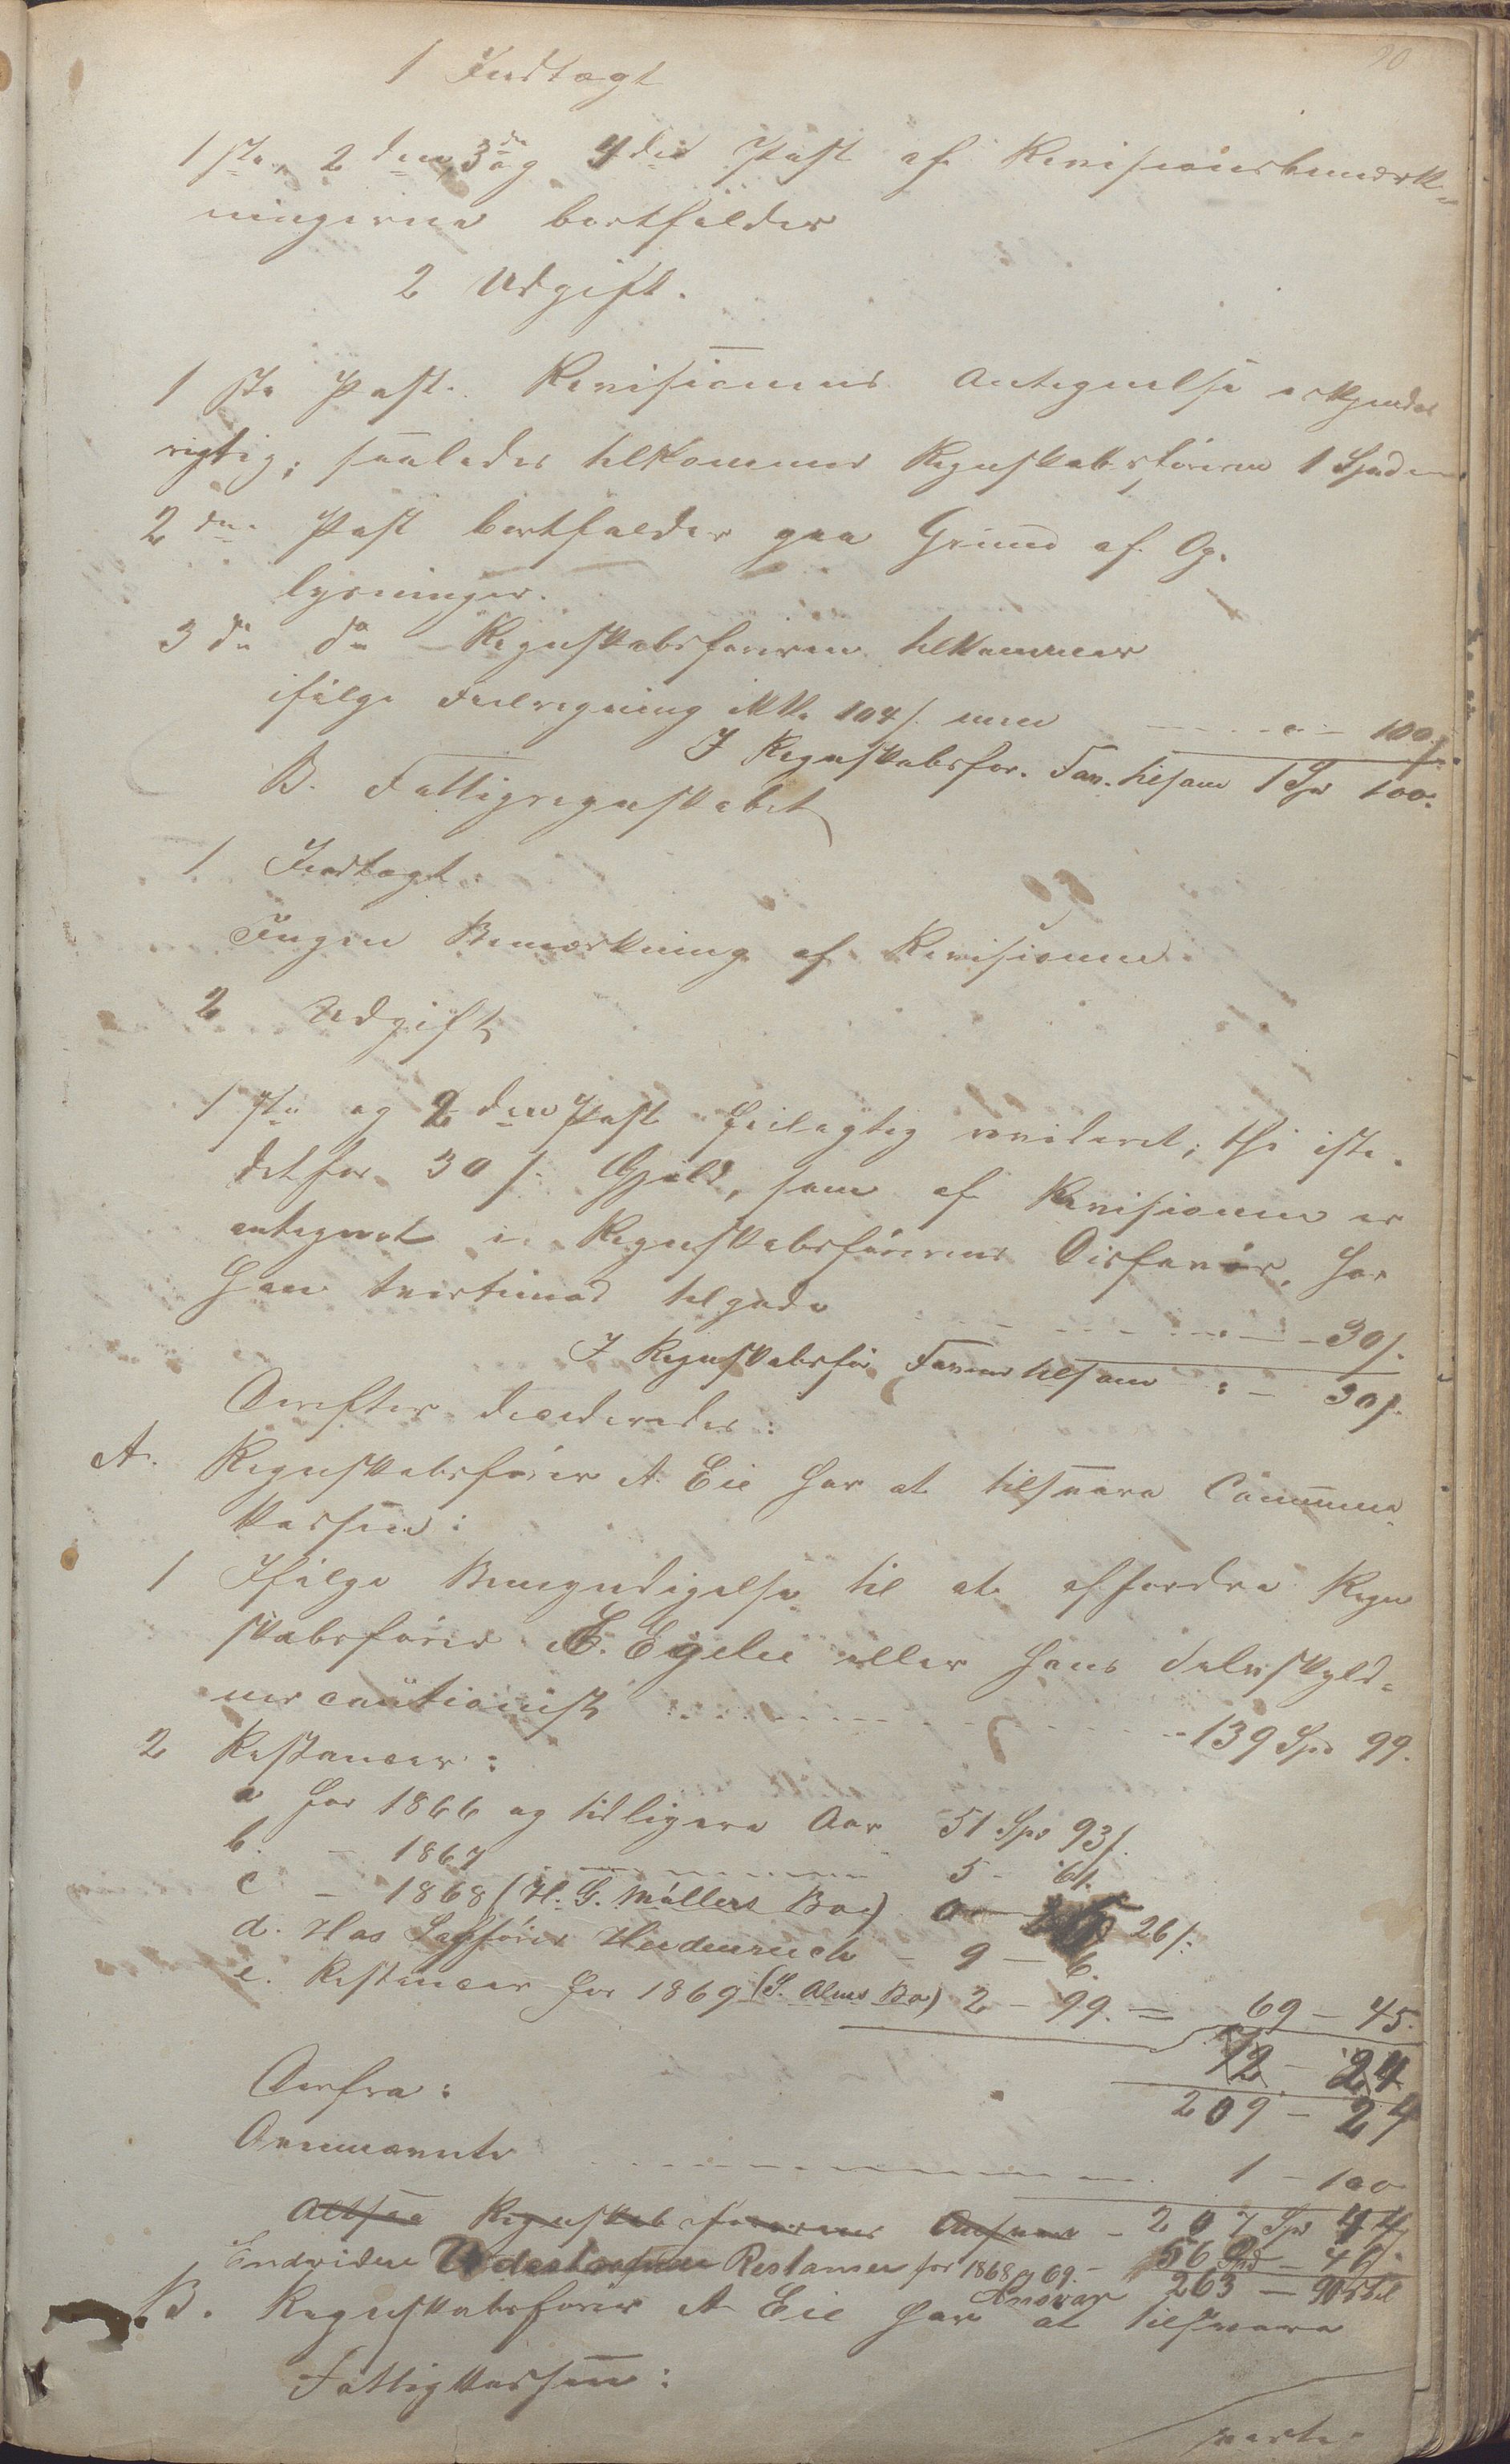 90
1 Indtægt
1ste, 2den, 3die og 4de Post af Revisionsbemærk-
ningerne bortfalder
2 Udgift.
1ste Post. Revisionens Antegnelse erkjendes
rigtig; saaledes tilkommer Regnskabsføreren 1 Spd
2den Post bortfalder paa Grund af Op-
lysninger.
3die do Regnskabsføreren tilkommer
ifølge Feilregning 104 s. men - - - " - 100 s.
I Regnskabsfør. Fav. tilsam 1 Spd 100.
B. Fattigregnskabet
1 Indtægt.
Ingen Bemærkning af Revisionen.
2 Udgift
1ste og 2den Post feilagtig revideret; thi iste-
detfor 30 s. Gjæld, som af Revisionen er
antegnet i Regnskabsførerens Disfavør, har
han tvertimod tilgode - - - " - 30 s.
I Regnskabsfør Favør tilsam : - 30 s.
Derefter decideredes:
A. Regnskabsfører A. Eie har at tilsvare Commune-
kassen:
1 Ifølge Bemyndigelse til at affordre Regn
skabsfører E. Egelie eller hans selvskyld-
ner cautionist - - - 139 Spd 99.
2 Restancer:
a for 1866 og tidligere Aar 51 Spd 93 s.
b. - 1867 - - - 5 - 61.
c - 1868 (H. G. Møllers Bo) 0 - 26 s.
d. Hos Sagfører Heidenreich - 9 - 6.
e. Restancer for 1869 (S. Alms Bo) 2 - 99. = 69 - 45.
12 - 24
209 - 24
Derfra:
Ovennævnte - - - 1 - 100
Altsaa Regnskabsførerens Ansvar - 207 Spd 44
Endvidere Restanser for 1868 og 69. - 56 Spd - 46.
Ansvar 263 - 90 skil
B. Regnskabsfører A Eie har at tilsvare
Fattigkassen: